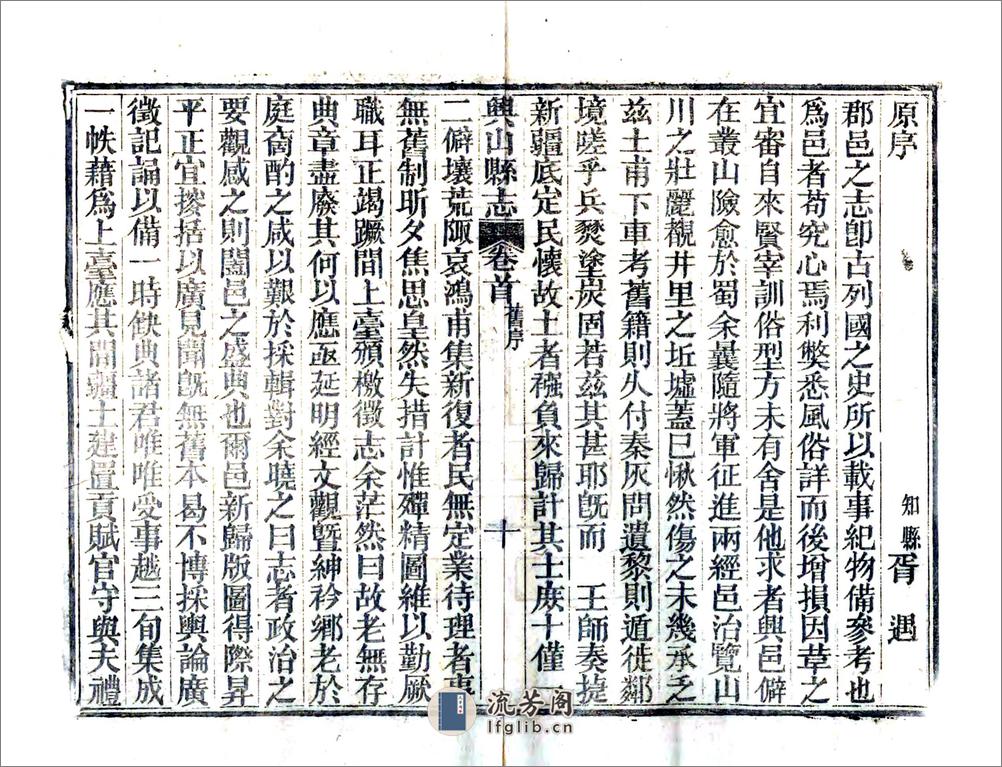 原序
知縣胥遇
郡邑之志卽古列國之史所以載事紀物備參考也
爲邑者苟究心焉利弊悉風俗詳而後增損因革之
宜審自來賢宰訓俗型方未有舍是他求者興邑僻
在叢山險愈於蜀余曩隨將軍征進兩經邑治覽山
川之壯麗觀井里之坵墟蓋已愀然傷之未幾承乏
茲土甫下車考舊籍則久付秦灰問遺黎則遁徙鄰
境嗟乎兵燹塗炭固若茲其甚耶旣而 王師奏捷
新疆底定民懷故土者襁負來歸計其士庶十僅
興山縣志 卷首 舊序 十
二僻壤荒陬哀鴻甫集新復者民無定業待理者事
無舊制昕夕焦思皇然失措計惟殫精圖維以勤厥
職耳正竭蹶間上臺頒檄徵志余茫然曰故老無存
典章盡廢其何以應亟延明經文觀曁紳衿鄉老於
庭啇酌之咸以艱於採輯對余曉之曰志者政治之
要觀感之則闔邑之盛典也爾邑新歸版圖得際昇
平正宜搜括以廣見聞旣無舊本曷不博採輿論廣
徵記誦以備一時缺典諸君唯唯受事越三旬集成
一帙藉爲上臺應其間疆土建置貢賦官守與夫禮
流芳阁
lfglib.cn